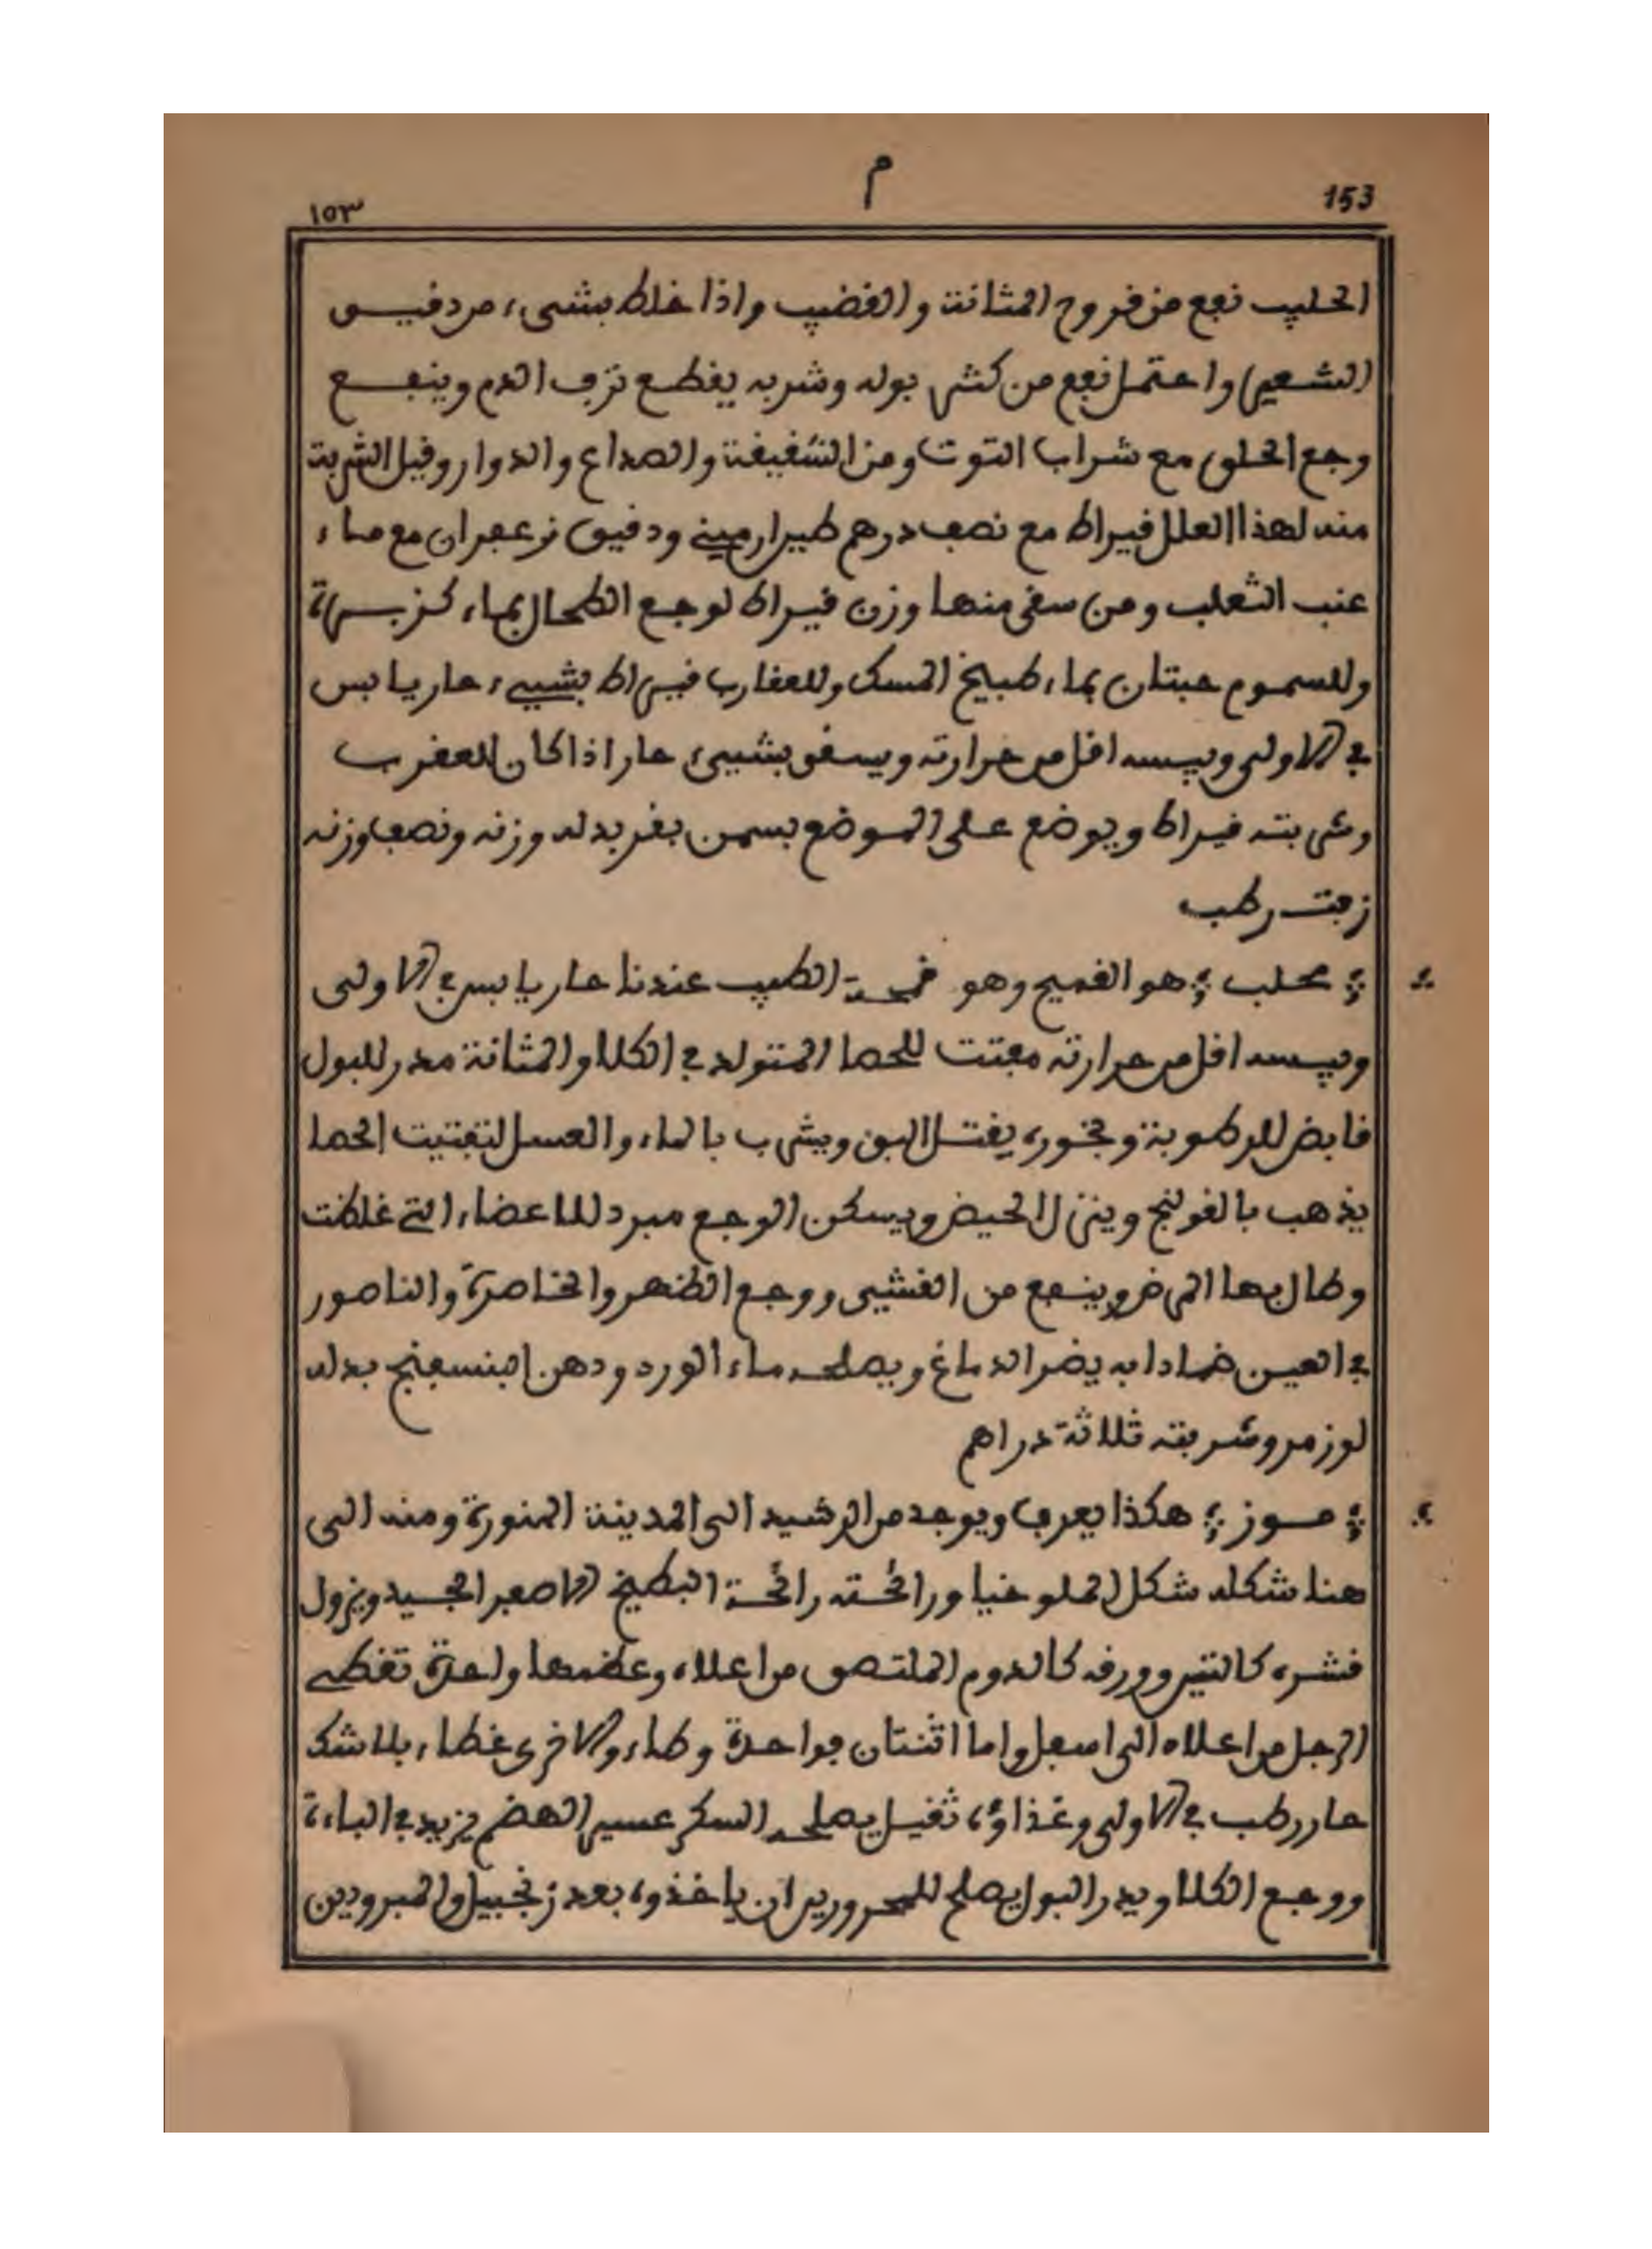 153
م
١٥٣
الحليب نفع من قروح المثانة والقضيب واذا خلط بشىء من دقيق
الشعير واحتمل نفع من كثر بوله وشربه يقطع نزف الدم وينفع
وجع الحلق مع شراب التوت ومن الشقيقة والصداع والدوار وقيل الشربة
منه لهذا العلل قيراط مع نصف درهم طير ارميني ودقيق زعفران مع ماء
عنب الثعلب ومن سقى منها وزن قيراط لوجع الطحال بماء كزبرة
وللسموم حبتان بماء طبيخ المسك وللعقارب قيراط بشيىء حار يابس
في الاولى ويبسه اقل من حرارته ويسقى بشيىء حار اذا كان للعقرب
وشربته قيراط ويوضع على الموضع بسمن بقر بدله وزنه ونصف وزنه
زفت رطب
محلب هو القميح وهو قمحة الطيب عندنا حار يابس في الاولى
ويبسه اقل من حرارته مفتت للحصا المتولد في الكلا والمثانة مدر للبول
قابض للرطوبة وبخوره يقتل البق ويشرب بالماء والعسل لتفتيت الحصا
يذهب بالقولنج وينزل الحيض ويسكن الوجع مبرد للاعضاء التي غلظت
وطال بها المرض وينفع من الغشيى ووجع الظهر والخاصرة والناصور
في العين ضمادا به يضر الدماغ ويصلحه ماء الورد ودهن البنسفنج بدله
لوز مر وشربته ثلاثة دراهم
موز هكذا يعرف ويوجد من الرشيد الى المدينة المنورة ومنه الى
هنا شكله شكل الملوخيا ورائحته رائحة البطيخ الاصفر الجيد ويزول
قشره كالتير وورقه كالدوم الملتصق من اعلاه وعظمها واحدة تغطي
الرجل من اعلاه الى اسفل واما اثنتان فواحدة وطاء والاخرى غطاء بلا شك
حار رطب في الاولى وغذاؤه ثقيل يصلحه السكر عسير الهضم يزيد في الباءة
ووجع الكلا ويدر البول يصلح للمحرورير ان ياخذوه بعد زنجبيل والمبرودين